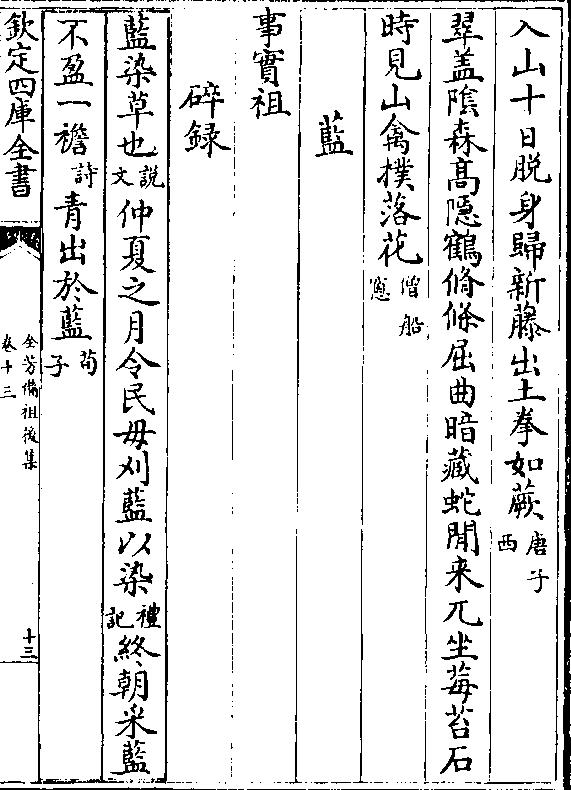 入山十日脱身歸新藤出土拳如蕨唐子西
翠盖隂森髙隠鶴脩條屈曲暗藏蛇閒来兀坐莓苔石
時見山禽撲落花僧船窓
藍
事實祖
碎録
藍染草也説文仲夏之月令民毋刈藍以染禮記終朝采藍
不盈一襜詩青出於藍荀子
欽定四庫全書
全芳備祖後集
卷十三
十三